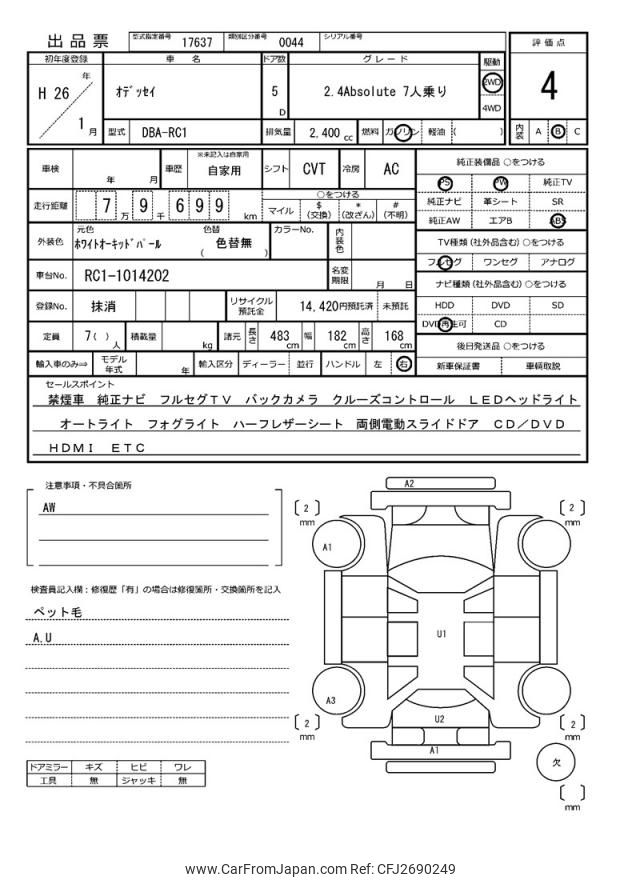 出品票 型式指定番号 17637 類別区分番号 0044 シリアル番号
評価点
4
内装 A B C
初年度登録 車名 ドア数 グレード 駆動
H 26 年 1 月 ｵﾃﾞｯｾｲ 5 D 2.4Absolute 7人乗り 2WD
4WD
型式 DBA-RC1 排気量 2,400 cc 燃料 ガソリン 軽油 ( )
車検 年 月 車歴 ※未記入は自家用 自家用 シフト CVT 冷房 AC
走行距離 7 万 9 千 6 9 9 km
○をつける
マイル $(交換) *(改ざん) #(不明)
外装色 元色 ﾎﾜｲﾄｵｰｷｯﾄﾞﾊﾟｰﾙ 色替 ( 色替無 ) カラーNo. 内装色
車台No. RC1-1014202 名変期限 月 日
登録No. 抹消 リサイクル預託金 14,420円預託済 未預託
定員 7( ) 人 積載量 kg 諸元 長さ 483 cm 幅 182 cm 高さ 168 cm
輸入車のみ⇨ モデル年式 年 輸入区分 ディーラー 並行 ハンドル 左 右
純正装備品 ○をつける
PS PW 純正TV
純正ナビ 革シート SR
純正AW エアB ABS
TV種類 (社外品含む) ○をつける
フルセグ ワンセグ アナログ
ナビ種類 (社外品含む) ○をつける
HDD DVD SD
DVD再生可 CD
後日発送品 ○をつける
新車保証書 車輌取説
セールスポイント
禁煙車 純正ナビ フルセグTV バックカメラ クルーズコントロール LEDヘッドライト
オートライト フォグライト ハーフレザーシート 両側電動スライドドア CD/DVD
HDMI ETC
注意事項・不具合箇所
AW
検査員記入欄：修復歴「有」の場合は修復箇所・交換箇所を記入
ペット毛
A.U
ドアミラー キズ ヒビ ワレ
工具 無 ジャッキ 無
A2
[ 2 ] mm
[ 2 ] mm
A1
U1
A3
U2
[ 2 ] mm
A1
[ 2 ] mm
欠
[ ] mm
www.CarFromJapan.com Ref: CFJ2690249